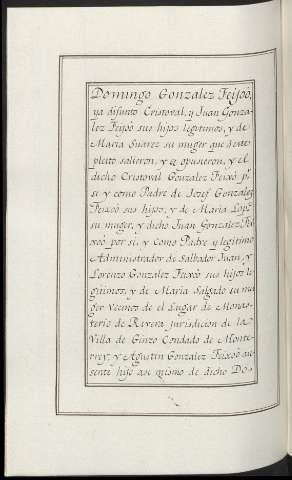 Domingo Gonzalez Feijoó,
ya difunto Cristoval, y Juan Gonza-
lez Feijoó sus hijos legitimos, y de
Maria Suarez su muger que à este
pleito salieron, y se opusieron, y el
dicho Cristoval Gonzalez Feixoó p.r
si y como Padre de Josef Gonzalez
Feixoó sus hijos, y de Maria Lopz
su muger, y dicho Juan Gonzalez Fei-
xoó por si, y como Padre y legitimo
Administrador de Salbador Juan, y
Lorenzo Gonzalez Feixoó sus hijos le-
gitimos, y de Maria Salgado su mu-
ger vecinos de el Lugar de Monas-
terio de Rivera jurisdicion de la
Villa de Ginzo Condado de Monte-
rrey, y Agustin Gonzalez Feixoó au-
sente hijo asi mismo de dicho Do-